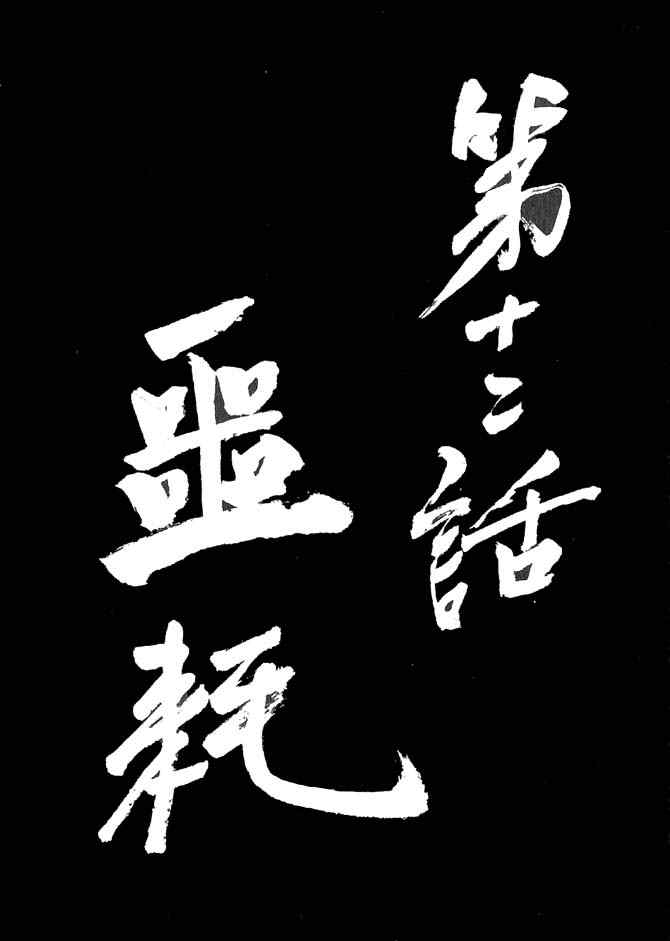 第十二話
噩耗